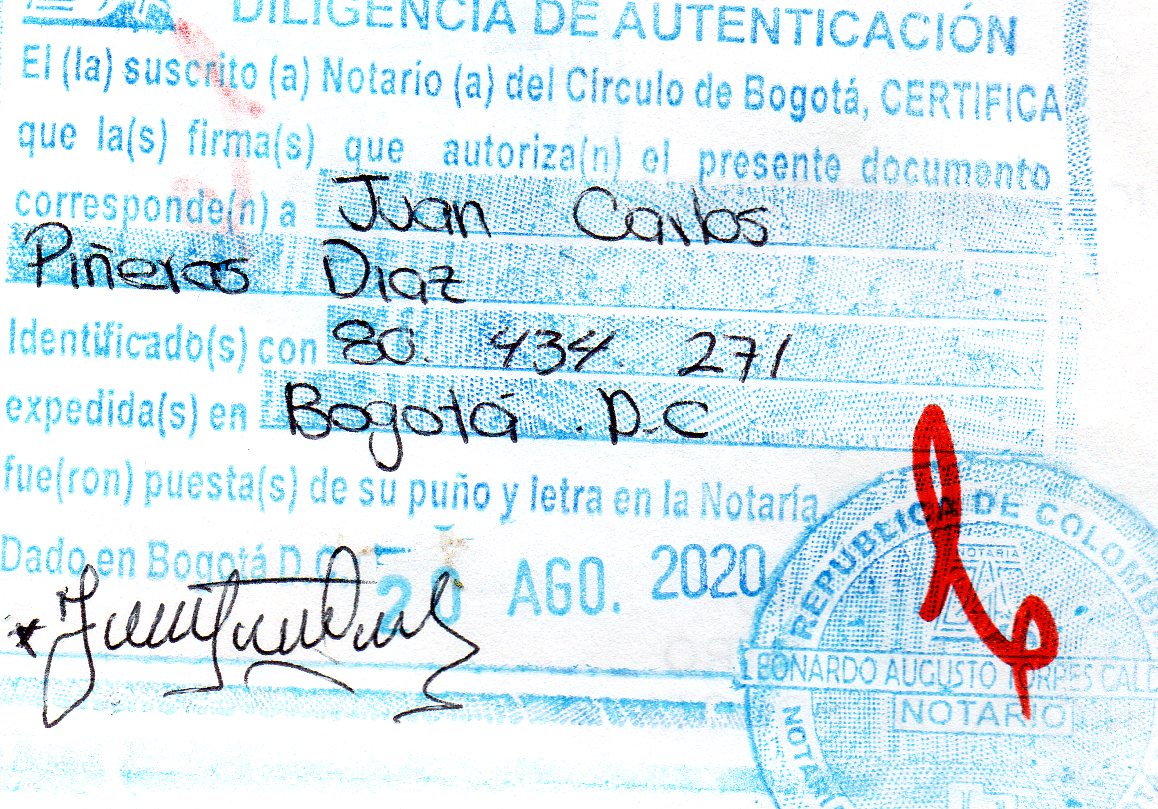 DILIGENCIA DE AUTENTICACIÓN
El (la) suscrito (a) Notario (a) del Círculo de Bogotá, CERTIFICA
que la(s) firma(s) que autoriza(n) el presente documento
corresponde(n) a Juan Carlos
Piñeros Diaz
Identificado(s) con 80. 434. 271
expedida(s) en Bogotá D.C
fue(ron) puesta(s) de su puño y letra en la Notaría
Dado en Bogotá D.C. 20 AGO. 2020
REPUBLICA DE COLOMB
NOTARIA
LEONARDO AUGUSTO TORRES CALD
NOTARIO
NOTARI